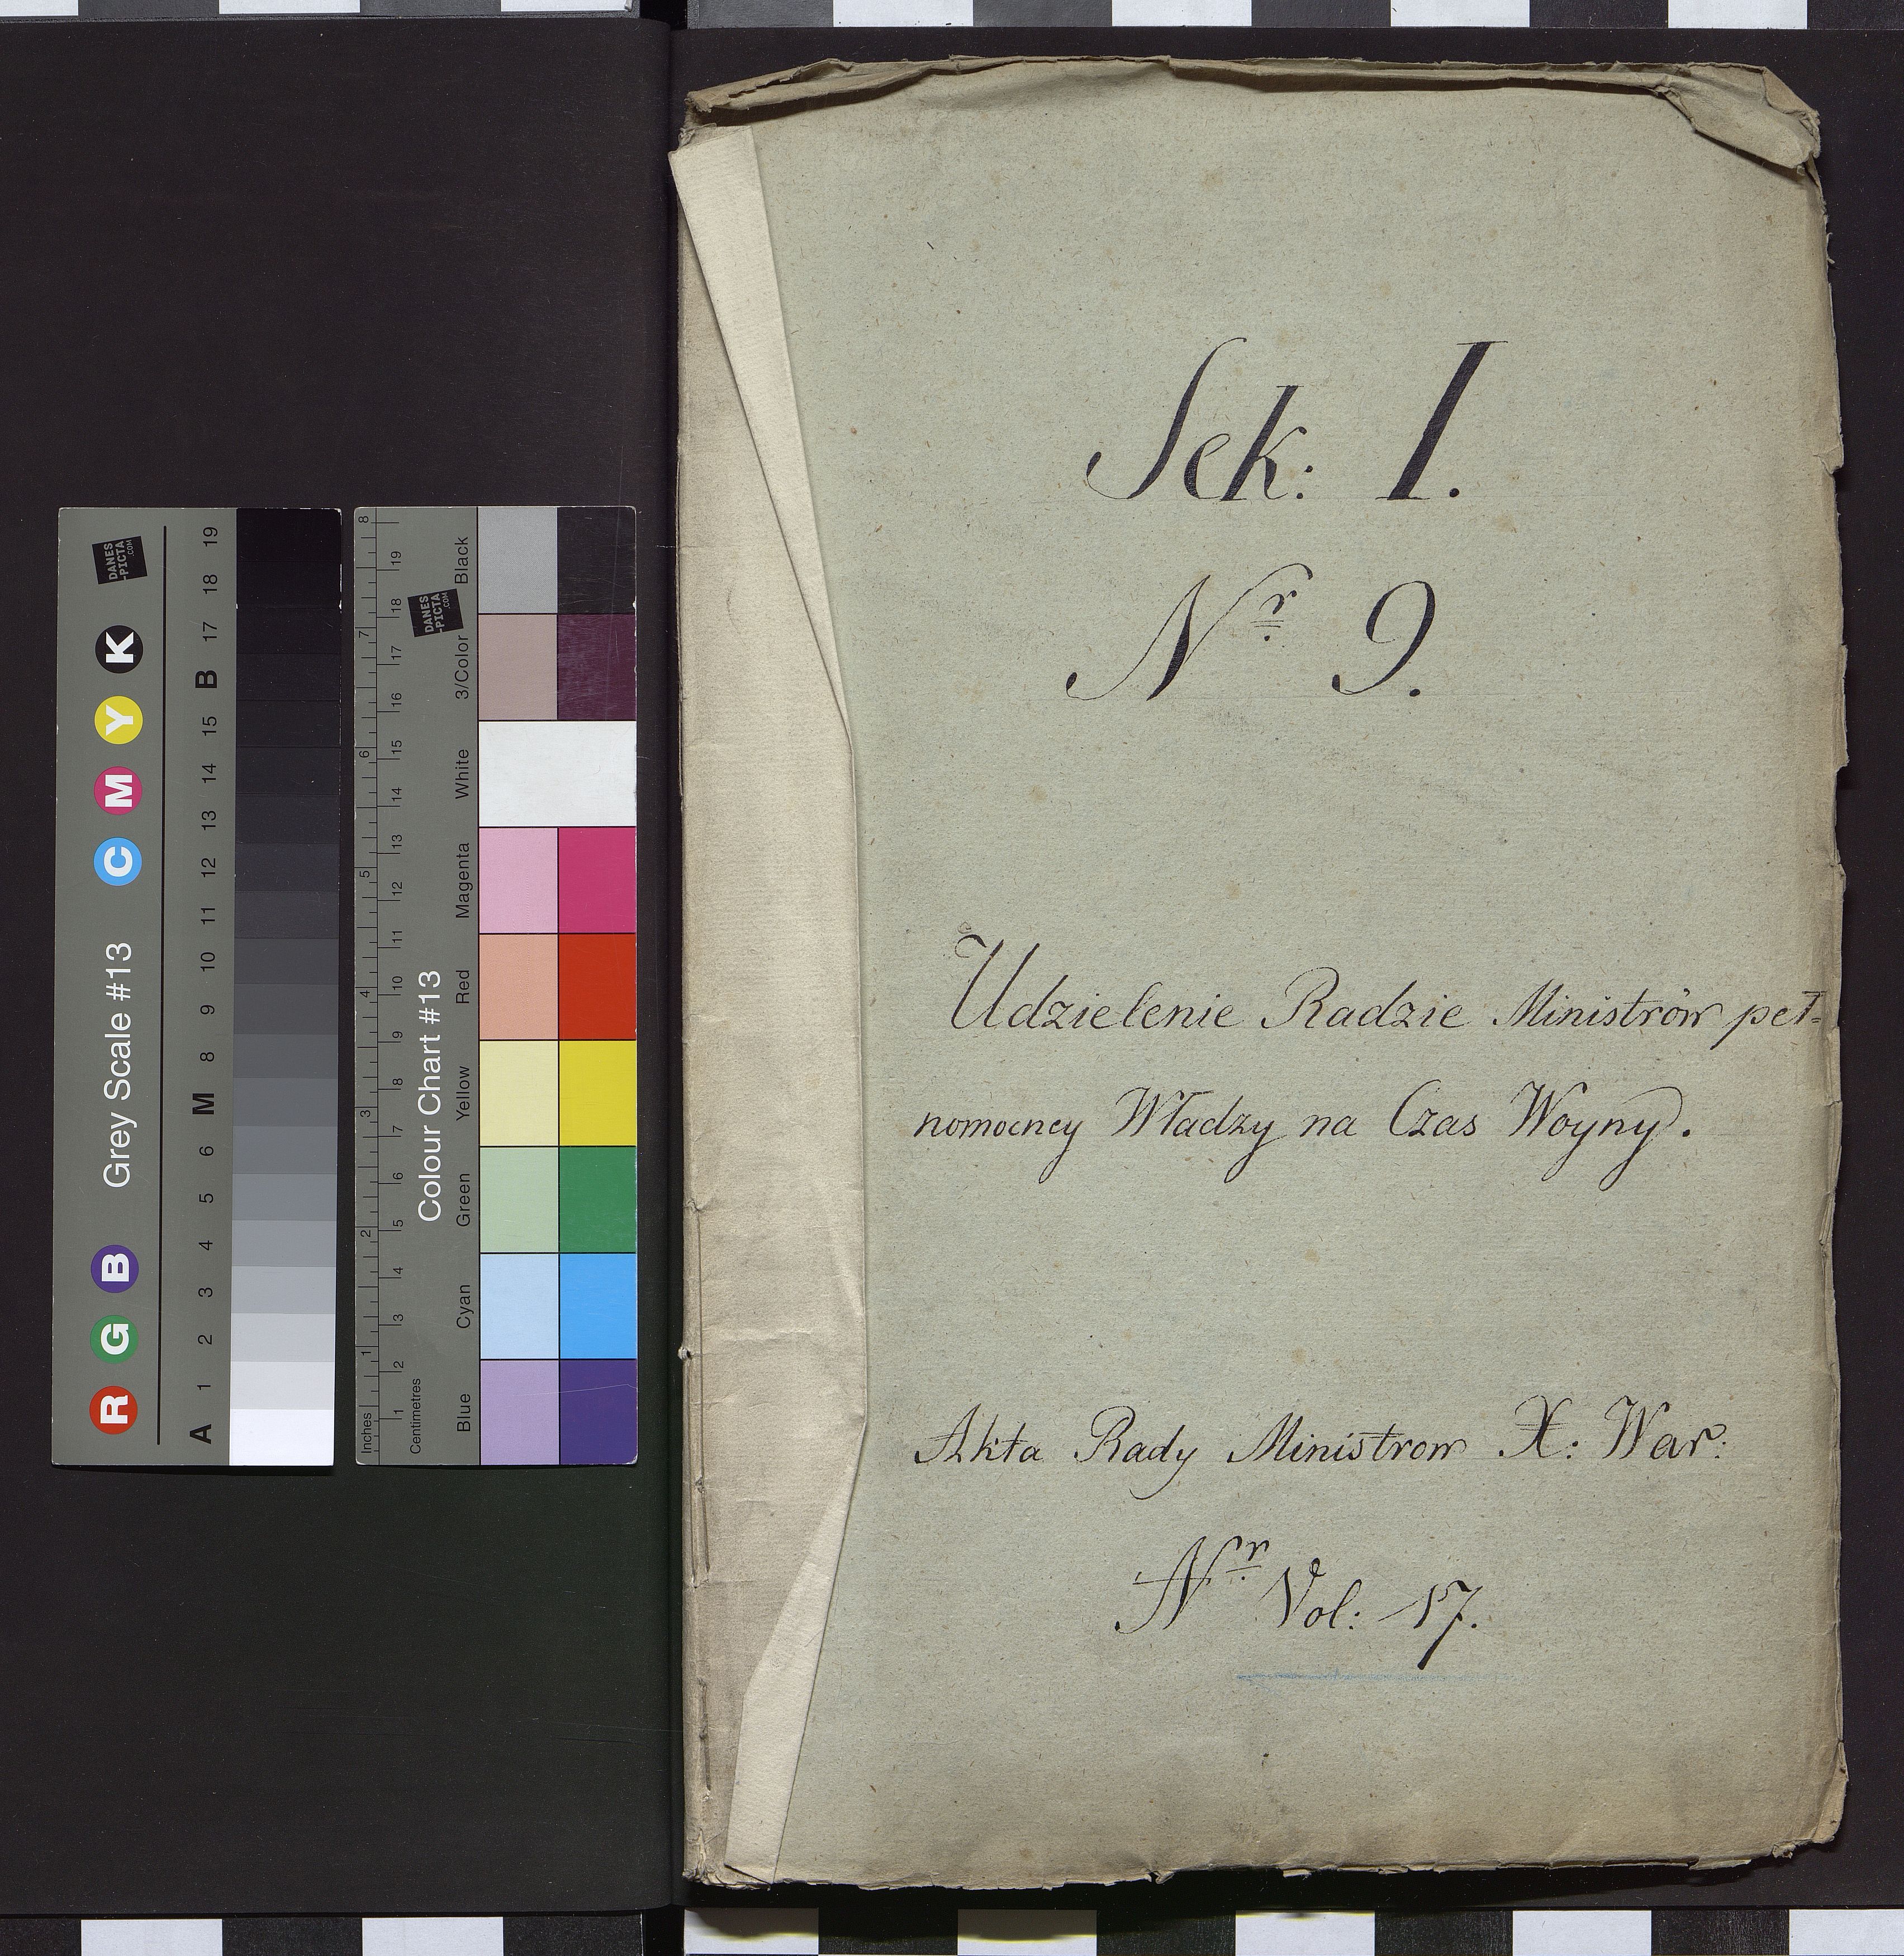 Sek: I.
Nr 9.
Udzielenie Radzie Ministrów peł-
nomocney Władzy na Czas Woyny.
Akta Rady Ministrow X: War:
Nr Vol: 17.
Grey Scale #13
R G B C M Y K
DANES
-PICTA
.COM
A 1 2 3 4 5 6 M 8 9 10 11 12 13 14 15 B 17 18 19
Colour Chart #13
DANES
-PICTA
.COM
Blue Cyan Green Yellow Red Magenta White 3/Color Black
Inches 1 2 3 4 5 6 7 8
Centimetres 1 2 3 4 5 6 7 8 9 10 11 12 13 14 15 16 17 18 19